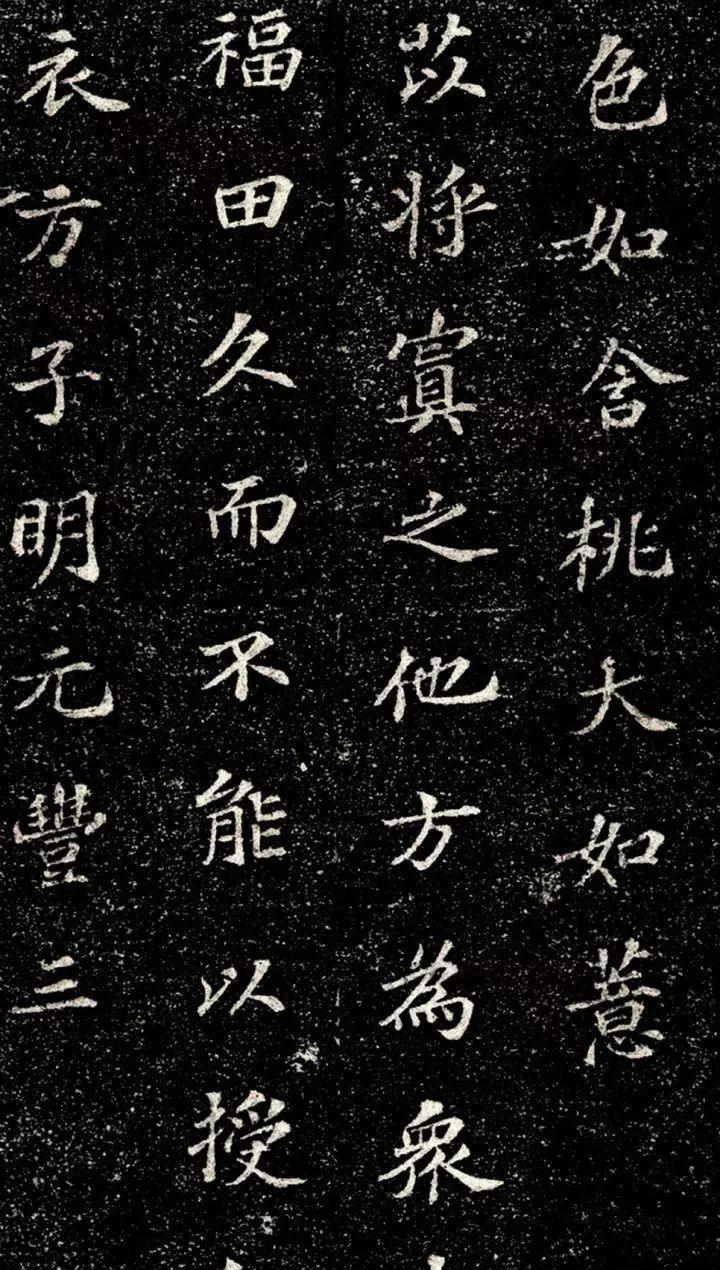 色如含桃大如薏
苡将寘之他方為衆
福田久而不能以授
衣方子明元豐三